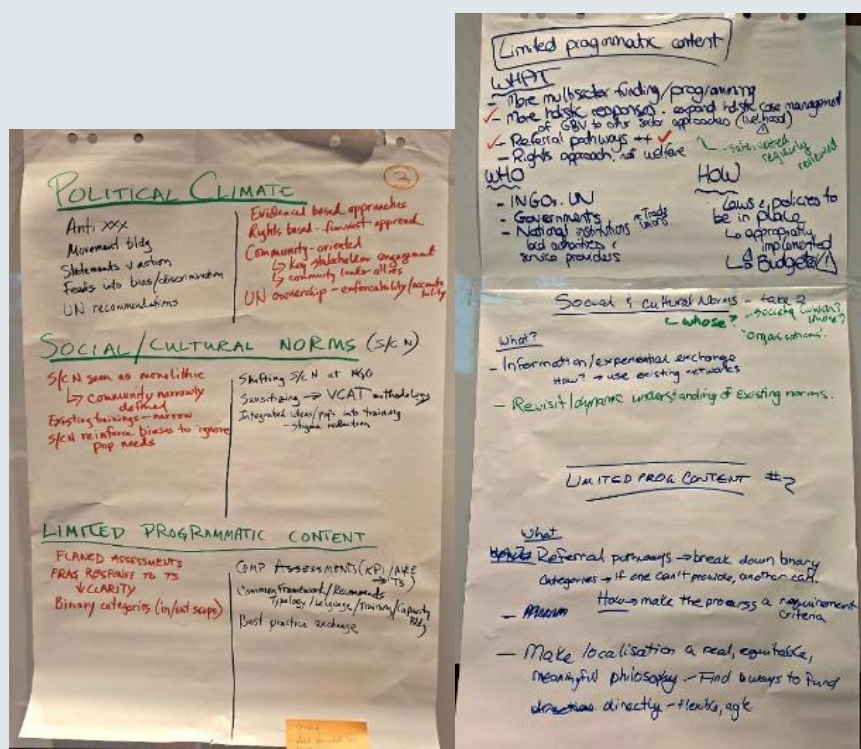 3
POLITICAL CLIMATE
Anti XXX
Movement bldg
Statements v action
Feeds into bias/discrimination
UN recommendations
Evidenced based approaches
Rights based - feminist approach
Community-oriented
↳ key stakeholder engagement
↳ community leader allies
UN ownership - enforcability/accountability
SOCIAL/CULTURAL NORMS (S/C N)
S/C N seen as monolithic
↳ community narrowly
defined
Existing trainings - narrow
S/C N reinforce biases to ignore
pop needs
Shifting S/C N at NGO
Sensitizing → VCAT methodology
Integrated ideas/pops into training
- stigma reduction
LIMITED PROGRAMMATIC CONTENT
FLAWED ASSESSMENTS
FRAG RESPONSE TO TS
↓ CLARITY
Binary categories (in/out scope)
COMP ASSESSMENTS (KPI/
→ TS)
Common Framework/
Typology/Language/Training/Capacity
Bldg
Best practice exchange
Limited programmatic content
WHAT
- More multisector funding/programming
- More holistic responses - expand holistic case management
of GBV to other sector approaches (livelihood)
- Referral pathways ++
- Rights approach, not welfare
- safe, vetted
regularly
reviewed
WHO
- INGOs, UN
- Governments
- National institutions
local authorities
service providers
+ Trade
unions
HOW
Laws & policies to
be in place
↳ appropriately
implemented
↳ Budgets
Social & cultural Norms - take 2
↳ whose?
- society
whose?
"organisations".
What?
- Information/experiential exchange
How? → use existing networks
- Revisit/dynamic understanding of existing norms.
LIMITED PROG CONTENT #2
What
Referral pathways → break down binary
categories → if one can't provide, another can.
How → make the process a requirement
criteria
- Make localisation a real, equitable,
meaningful philosophy - Find ways to fund
directly - flexible, agile